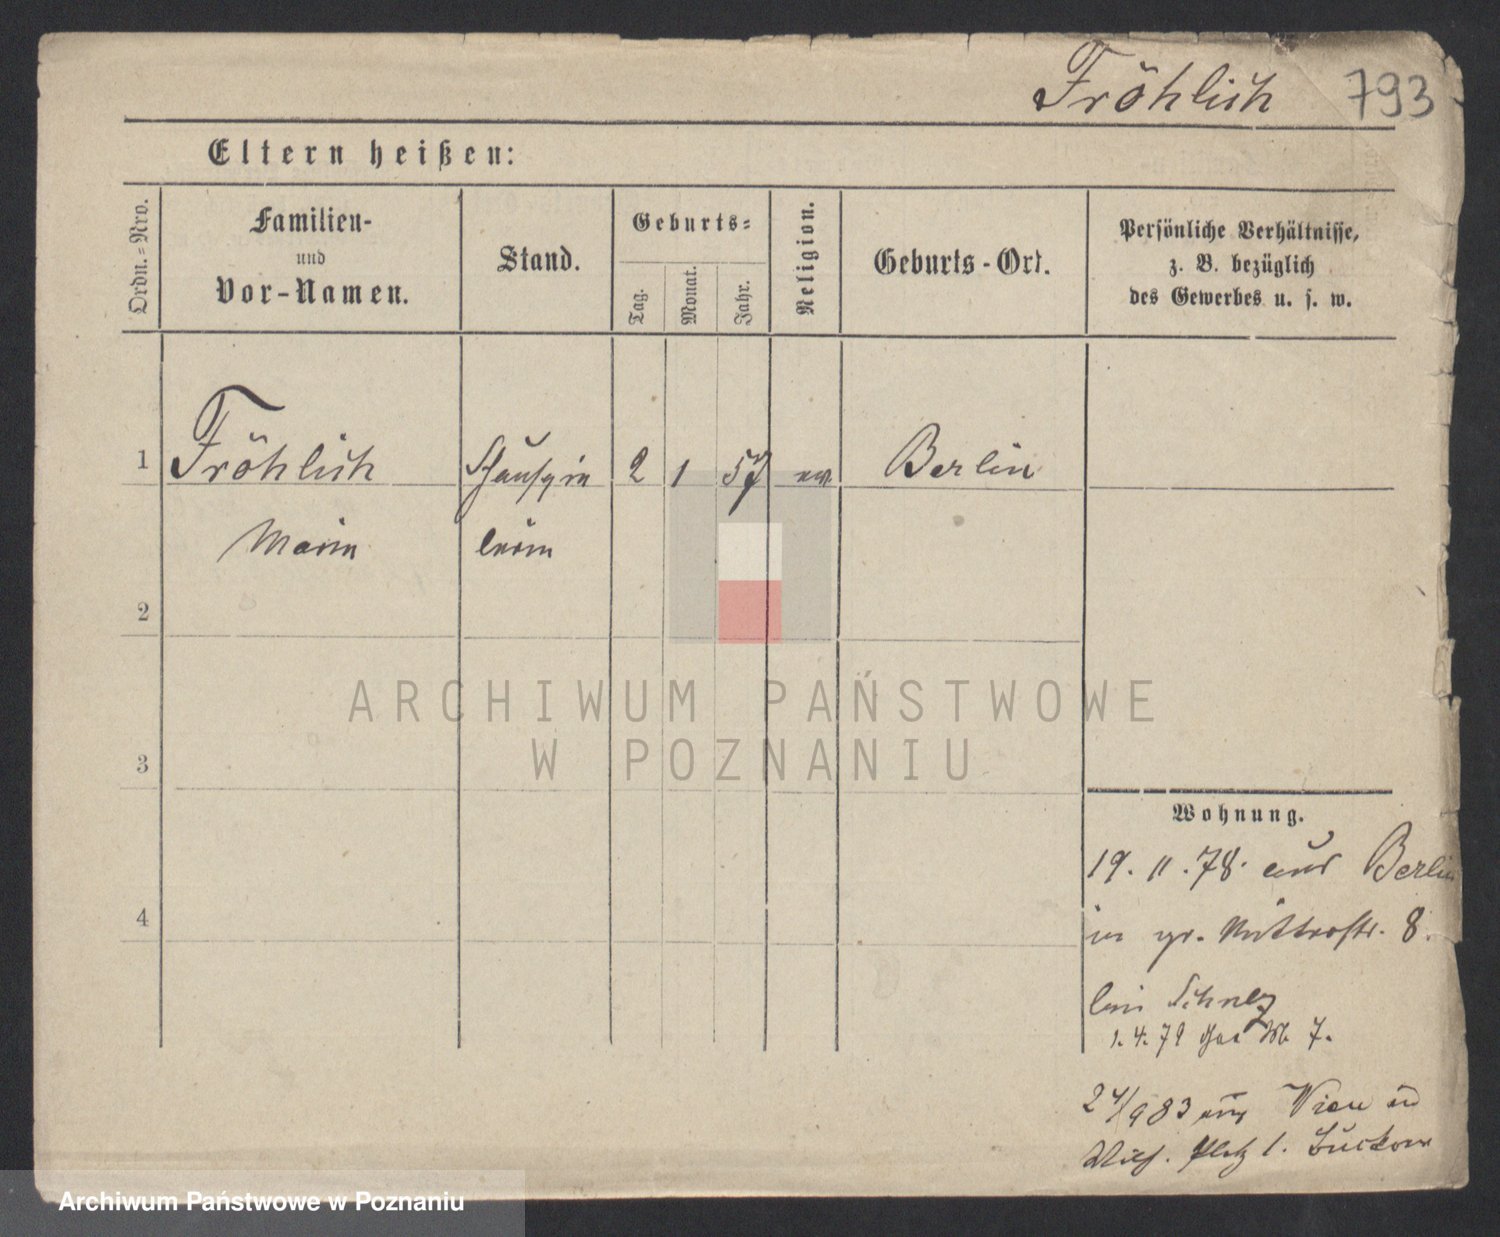 Fröhlich 793
Eltern heißen:
Ordn.-Nro.
Familien-
und
Vor-Namen.
Stand.
Geburts-
Tag.
Monat.
Jahr.
Religion.
Geburts-Ort.
Persönliche Verhältnisse,
z. B. bezüglich
des Gewerbes u. s. w.
1 Fröhlich Schauspie 2 1 57 ev Berlin
Marie lerin
2
3
4
ARCHIWUM PAŃSTWOWE
W POZNANIU
Wohnung.
19. 11. 78. aus Berlin
in gr. Ritterstr. 8.
bei
1. 4. 79 7.
24/9 83 aus Wien in
Wilh. Platz 1.
Archiwum Państwowe w Poznaniu